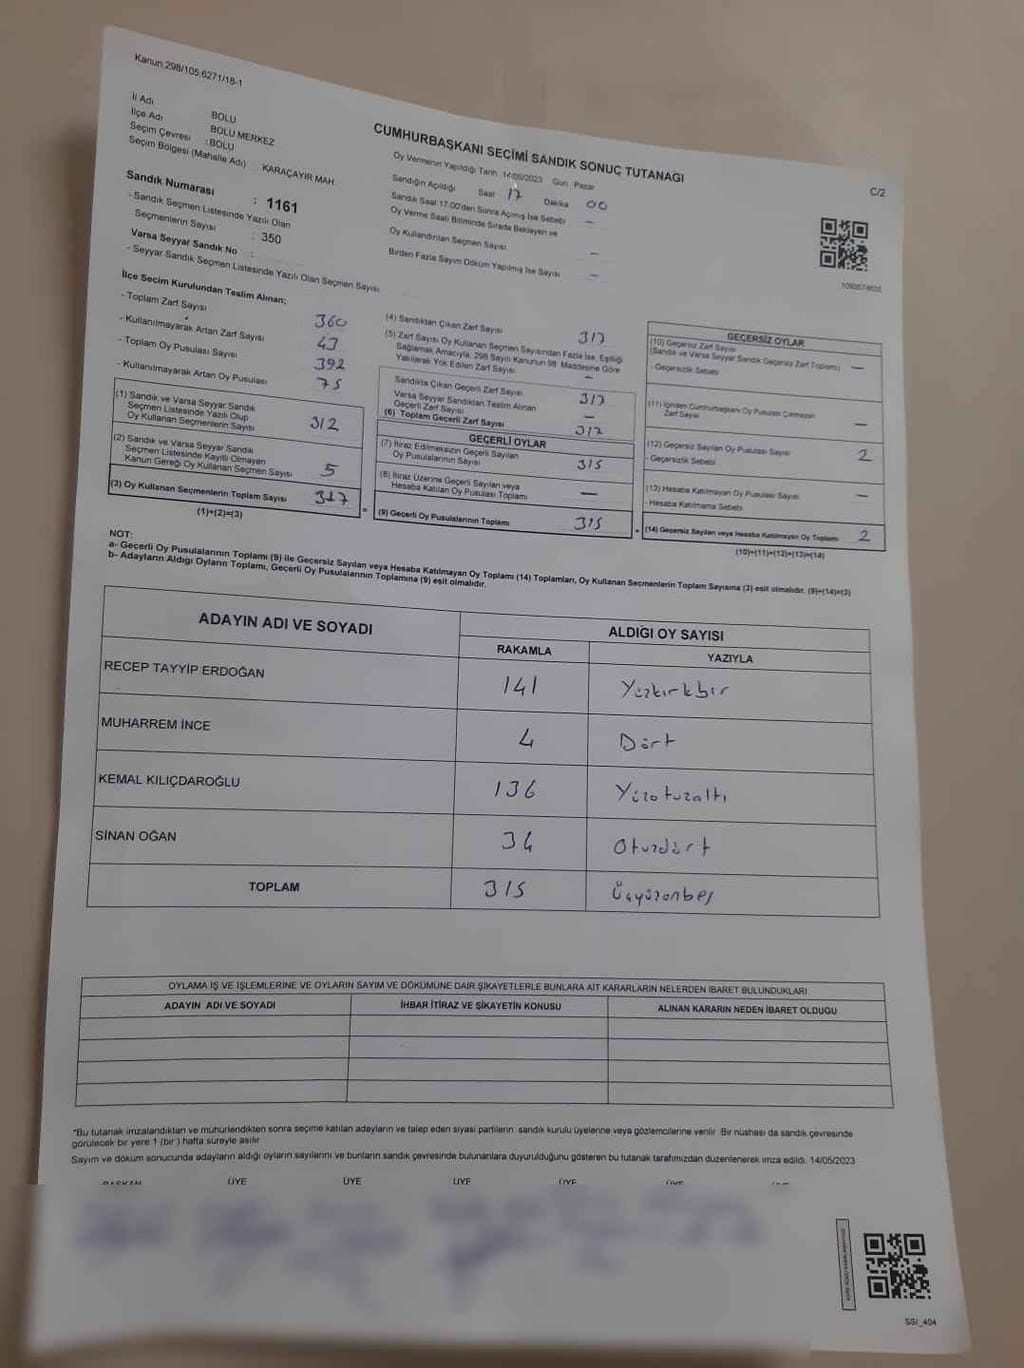 Kanun 298/105,6271/18-1
İl Adı
BOLU
İlçe Adı
BOLU MERKEZ
Seçim Çevresi :BOLU
Seçim Bölgesi (Mahalle Adı) KARAÇAYIR MAH
Sandık Numarası : 1161
- Sandık Seçmen Listesinde Yazılı Olan
Seçmenlerin Sayısı : 350
Varsa Seyyar Sandık No :
- Seyyar Sandık Seçmen Listesinde Yazılı Olan Seçmen Sayısı
CUMHURBAŞKANI SEÇİMİ SANDIK SONUÇ TUTANAĞI
C/2
Oy Vermenin Yapıldığı Tarih :14/05/2023 Gün : Pazar
Sandığın Açıldığı Saat 17 Dakika 00
Sandık Saat 17:00'den Sonra Açılmış İse Sebebi —
Oy Verme Saati Bitiminde Sırada Bekleyen ve
Oy Kullandırılan Seçmen Sayısı —
Birden Fazla Sayım Döküm Yapılmış İse Sayısı —
İlçe Seçim Kurulundan Teslim Alınan;
- Toplam Zarf Sayısı 360
- Kullanılmayarak Artan Zarf Sayısı 43
- Toplam Oy Pusulası Sayısı 392
- Kullanılmayarak Artan Oy Pusulası 75
(1) Sandık ve Varsa Seyyar Sandık
Seçmen Listesinde Yazılı Olup
Oy Kullanan Seçmenlerin Sayısı 312
(2) Sandık ve Varsa Seyyar Sandık
Seçmen Listesinde Kayıtlı Olmayan
Kanun Gereği Oy Kullanan Seçmen Sayısı 5
(3) Oy Kullanan Seçmenlerin Toplam Sayısı 317
(1)+(2)=(3)
(4) Sandıktan Çıkan Zarf Sayısı 317
(5) Zarf Sayısı Oy Kullanan Seçmen Sayısından Fazla İse, Eşitliği
Sağlamak Amacıyla, 298 Sayılı Kanunun 98. Maddesine Göre
Yakılarak Yok Edilen Zarf Sayısı —
Sandıkta Çıkan Geçerli Zarf Sayısı 317
Varsa Seyyar Sandıktan Teslim Alınan
Geçerli Zarf Sayısı —
(6) Toplam Geçerli Zarf Sayısı 317
GEÇERLİ OYLAR
(7) İtiraz Edilmeksizin Geçerli Sayılan
Oy Pusulalarının Sayısı 315
(8) İtiraz Üzerine Geçerli Sayılan veya
Hesaba Katılan Oy Pusulası Toplamı —
(9) Geçerli Oy Pusulalarının Toplamı 315
GEÇERSİZ OYLAR
(10) Geçersiz Zarf Sayısı
(Sandık ve Varsa Seyyar Sandık Geçersiz Zarf Toplamı) —
- Geçersizlik Sebebi
(11) İçinden Cumhurbaşkanı Oy Pusulası Çıkmayan
Zarf Sayısı —
(12) Geçersiz Sayılan Oy Pusulası Sayısı 2
- Geçersizlik Sebebi
(13) Hesaba Katılmayan Oy Pusulası Sayısı —
- Hesaba Katılmama Sebebi
(14) Geçersiz Sayılan veya Hesaba Katılmayan Oy Toplamı 2
(10)+(11)+(12)+(13)=(14)
NOT:
a- Geçerli Oy Pusulalarının Toplamı (9) ile Geçersiz Sayılan veya Hesaba Katılmayan Oy Toplamı (14) Toplamları, Oy Kullanan Seçmenlerin Toplam Sayısına (3) eşit olmalıdır. (9)+(14)=(3)
b- Adayların Aldığı Oyların Toplamı, Geçerli Oy Pusulalarının Toplamına (9) eşit olmalıdır.
ADAYIN ADI VE SOYADI
ALDIĞI OY SAYISI
RAKAMLA
YAZIYLA
RECEP TAYYİP ERDOĞAN 141 Yüzkırkbir
MUHARREM İNCE 4 Dört
KEMAL KILIÇDAROĞLU 136 Yüzotuzaltı
SİNAN OĞAN 34 Otuzdört
TOPLAM 315 Üçyüzonbeş
OYLAMA İŞ VE İŞLEMLERİNE VE OYLARIN SAYIM VE DÖKÜMÜNE DAİR ŞİKAYETLERLE BUNLARA AİT KARARLARIN NELERDEN İBARET BULUNDUKLARI
ADAYIN ADI VE SOYADI
İHBAR İTİRAZ VE ŞİKAYETİN KONUSU
ALINAN KARARIN NEDEN İBARET OLDUĞU
*Bu tutanak imzalandıktan ve mühürlendikten sonra seçime katılan adayların ve talep eden siyasi partilerin sandık kurulu üyelerine veya gözlemcilerine verilir. Bir nüshası da sandık çevresinde
görülecek bir yere 1 (bir ) hafta süreyle asılır
Sayım ve döküm sonucunda adayların aldığı oyların sayılarını ve bunların sandık çevresinde bulunanlara duyurulduğunu gösteren bu tutanak tarafımızdan düzenlenerek imza edildi. 14/05/2023
BAŞKAN ÜYE ÜYE ÜYE ÜYE ÜYE ÜYE
SSI_404